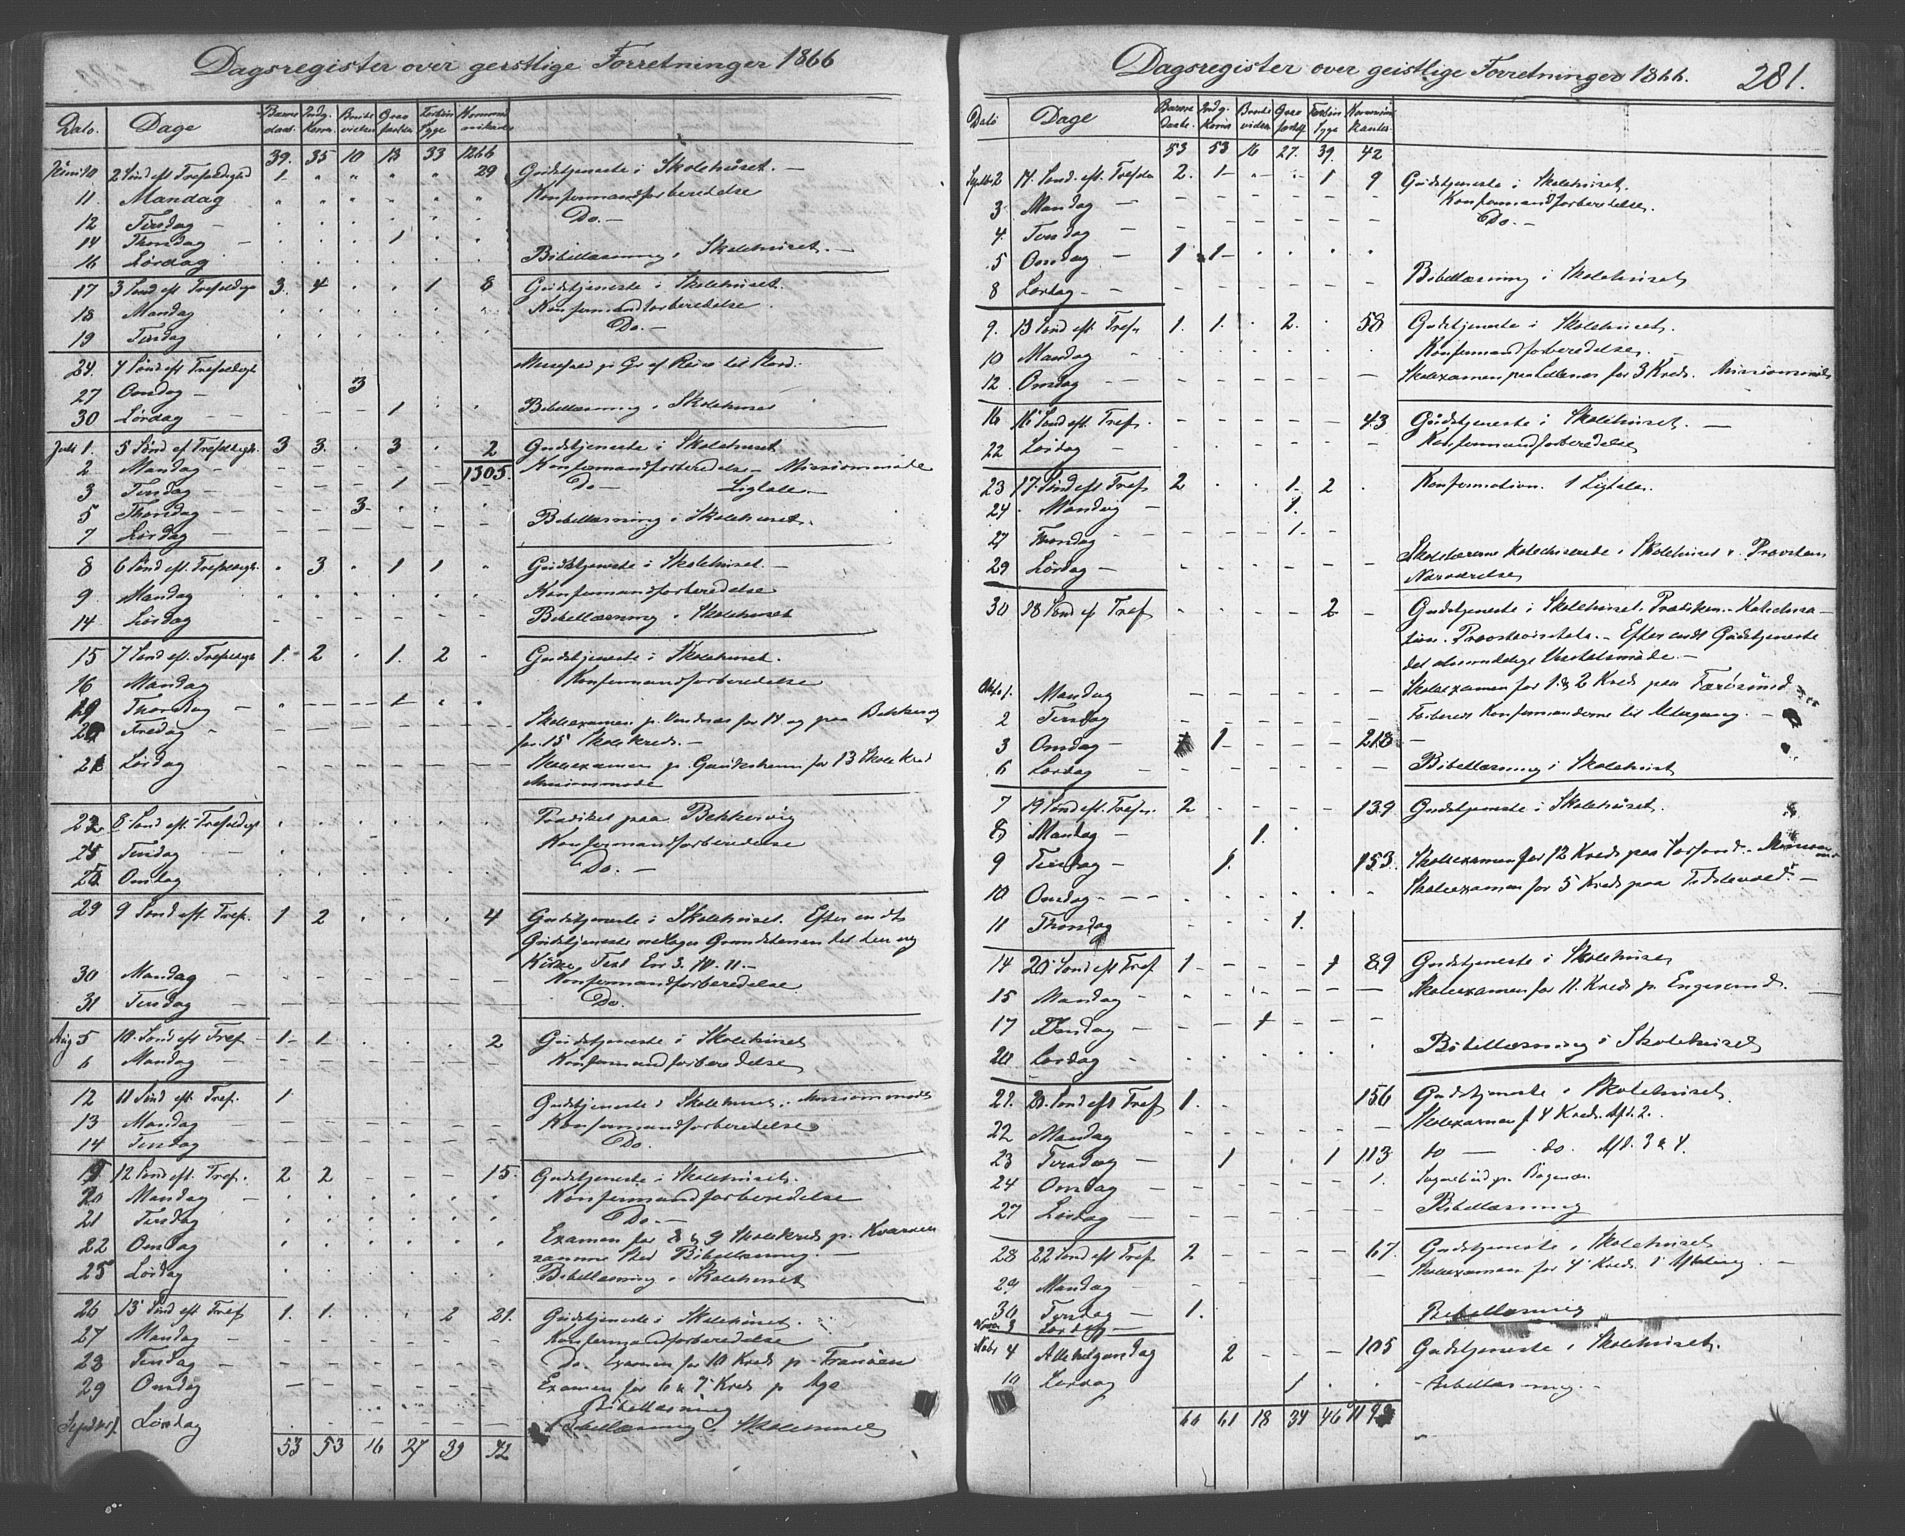 Dagsregister over geistlige Forretninger 1866
Dato. Dage
39. 35 10 13 33 1266
Juni 10 2 Sönd eft Trefoldighd 1. " " " " 29 Gudstjeneste i Skolehuset. —
11. Mandag " " " " " " Konfermandforberedelse
12 Tirsdag Do. —
14 Thorsdag — 1
16 Lördag Bibellæsning i Skolehuset. —
17 3 Sönd eft Trefoldigh 3. 4 . . 1 8 Gudstjeneste i Skolehuset.
18 Mandag Konfermandforberedelse
19 Tirsdag Do. —
24. 4 Sönd eft Trefoldigh
27 Onsdag 3
30 Lördag — 1 Bibellæsning i Skolehuset
Juli 1. 5 Sönd ef Trefoldigh. 3 3. . 3 . 2 Gudstjeneste i Skolehuset
2. Mandag — 1305. Konfermandforberedelse — Missionsmöde
3 Tirsdag — 1 Do — Ligtale. —
5 Thorsdag — 3
7 Lördag — Bibellæsning i Skolehuset.
8 6 Sönd eft. Trefoldigh. . 3 . 1 1 . Gudstjeneste i Skolehuset. —
9. Mandag Konfermandforberedelse
14. Lördag Bibellæsning i Skolehuset
15 7 Sönd eft. Trefoldigh 1. 2 . 1. 2 - Gudstjeneste i Skolehuset.
16 Mandag Konfermandforberedelse
19 Thorsdag — 1
20 Fredag — Skoleexamen p. Vendnæs for 14. og paa Bekkervig
for 15 Skolekreds. —
21 Lördag Skoleexamen p. for 13 Skolekred
Missionsmöde
22 8 Sönd eft. Trefoldigh Prædiket paa Bekkervig
Tirsdag Konfermandforberedelse
25 Onsdag Do. —
29 9 Sönd eft. Tref. 1 2 . . . 4 Gudstjeneste i Skolehuset. Efter endt
Gudstjeneste Grundstenen til den ny
Kirke, Text 3. 10. 11. —
30 Mandag — Konfermandforberedelse
31 Tirsdag Do.
Aug 5 10. Sönd eft Tref — 1 1 . . . 2 Gudstjeneste i Skolehuset
6 Mandag Konfermandforberedelse
12 11 Sönd eft. Tref. 1 Gudstjeneste i Skolehuset. Missionsmöde
13 Mandag Konfermandforberedelse
14 Tirsdag Do.
12 Sönd eft. Tref. 2 2 - - - 15. Gudstjeneste i Skolehuset.
20 Mandag — Konfermandforberedelse
21 Tirsdag Do. —
22 Onsdag Examen for 8 & 9 Skolekreds p.
samme Sted Bibellæsning. —
25 Lördag Bibellæsning i Skolehuset
26 13 Sönd eft Tref 1. 1. . . 2 21. Gudstjeneste i Skolehuset.
27 Mandag Konfermandforberedelse
28 Tirsdag — Do. Examen for 10 Kreds p.
29 Onsdag Examen for 6 & 7 Kreds p.
Bibellæsning
Septbr 1. Lördag Bibellæsning i Skolehuset
53 53 16 27 39 42
Dagsregister over geistlige Forretninger 1866. 281.
Dato Dage
53 53 16 27. 39. 42
Septbr 2 14. Sönd. eft. Trefol 2. 1 - - 1 9 Gudstjeneste i Skolehuset.
3. Mandag — Konfermandforberedelse.
4. Tirsdag — Do. —
5 Onsdag 1 1
8 Lördag — Bibellæsning i Skolehuset
9. 15 Sönd eft Tref. 1. 1. . 2. 58 Gudstjeneste i Skolehuset.
10 Mandag Konfermandforberedelse.
12. Onsdag — Skoleexamen paa for 3 Kreds. Missionsmöde
16 16 Sönd eft. Tref. 43 Gudstjeneste i Skolehuset. —
22 Lördag Konfermandforberedelse
23 17. Sönd eft Tref. 2 . . 1. 2 . Konfermation. 1 Ligtale.
24 Mandag 1.
27 Thorsdag 1.
29 Lördag — Skolelærerne Katechiserede i Skolehuset i Provstens
Nærværelse
30 18 Sönd ef Tref 2. Gudstjeneste i Skolehuset. Prædiken. Katechisa-
tion. Provstevisitats. — Efter endt Gudstjeneste
det almindelige Visitatsmöde. —
Oktb 1. Mandag Skoleexamen for 1 & 2 Kred paa Færösund
2 Tirsdag Konfermanderne til Altergang. —
3 Onsdag — 1 218 —
6 Lördag Bibellæsning i Skolehuset
7 19 Sönd eft. Tref. 2 139 Gudstjeneste i Skolehuset.
8 Mandag — 1.
9 Tirsdag — 1. 153. Skoleexamen for 12 Kreds paa
10 Onsdag — Skoleexamen for 5 Kreds paa
11 Thorsdag 1.
14 20 Sönd eft Tref 1 - - - 1 89 Gudstjeneste i Skolehuset
15 Mandag Skoleexamen for 11. Kreds p. Engesund. —
17 1
20 Lördag Bibellæsning i Skolehuset
21. 21. Sönd eft Tref 1. 156 Gudstjeneste i Skolehuset.
22 Mandag Skoleexamen f 4 Kreds. Afd. 2.
23 Tirsdag — 1 . 1 113 do — . do. Afd. 3 & 4.
24 Onsdag 1.
27 Lördag Bibellæsning
28 22 Sönd eft Tref. 2 67. Gudstjeneste i Skolehuset
29 Mandag Skoleexamen for 4 Kreds. 1 Afdeling. —
30 Tirsdag 1.
3 Lördag — Bibellæsning
Nobr 4 Allehelgensdag 2 105 Gudstjeneste i Skolehuset.
10 Lördag 1 Bibellæsning. —
66 61 18 34 46